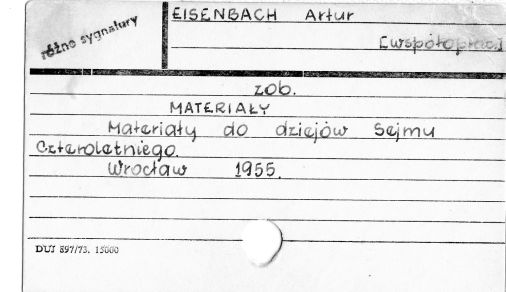 różne sygnatury
EISENBACH Artur
[współoprac.]
zob.
MATERIAŁY
Materiały do dziejów Sejmu
Czteroletniego.
Wrocław 1955.
DUJ 897/73. 15000